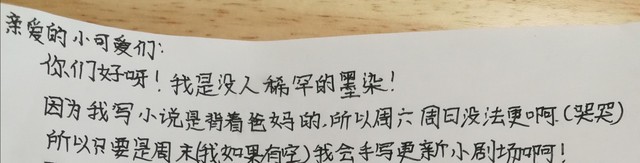 亲爱的小可爱们:
你们好呀！我是没人稀罕的墨染！
因为我写小说是背着爸妈的.所以周六周日没法更啊.(哭哭)
所以只要是周末(我如果有空)我会手写更新小剧场啊！